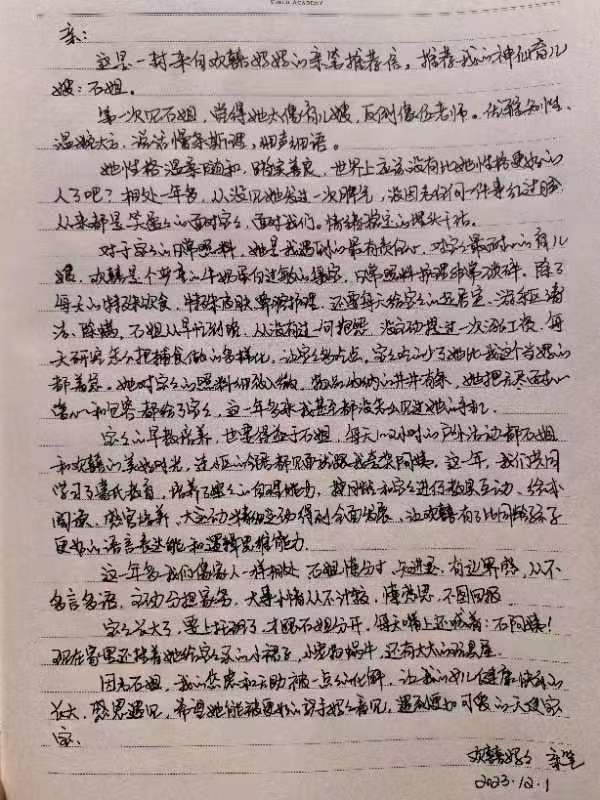 ACADEMY
亲:
这是一封来自欢赫妈妈的亲笔推荐信,推荐我的神仙育儿
嫂:石姐。
第一次见石姐,觉得她太像育儿嫂,反倒像位老师。优雅知性、
温婉大方,说话慢条斯理,细声细语。
她性格温柔随和,踏实善良,世界上应该没有比她性格更好的
人了吧?相处一年多,从没见她发过一次脾气,没因为任何一件事红过脸
从来都是笑盈盈的面对宝宝,面对我们。情绪稳定的
对于宝宝的日常照料,她是我遇到的最有责任心,对宝宝最有耐心的育儿
嫂,欢赫是个步重的牛奶蛋白过敏的保宝,日常照料护理非常琐碎。除了
每天的特殊饮食,特殊皮肤护理,还要每天给宝宝的卧室、活动区清
洁、除螨,石姐从早忙到晚,从没有过一句抱怨,没主动提过一次涨工资,每
天研究怎么把辅食做的多样化,让宝宝多吃点,宝宝吃少了她比我这个当妈的
都着急。她对宝宝的照料细致入微,物品收纳的井井有条,她把无尽的耐心
爱心和包容都给了宝宝,这一年多来我甚至都没怎么见过她的手机。
宝宝的早教培养,也要得益于石姐,每天的2小时的户外活动都石姐
和欢赫的美好时光,连小区的邻居都见面就跟我夸石阿姨。这一年,我们共同
学习了蒙氏教育,培养了宝宝的自理能力,按月龄和宝宝进行早教互动、绘本
阅读、感官培养,大运动精细运动得到全面发展,让欢赫有了比同龄孩子
更好的语言表达能和逻辑思维能力。
这一年多我们像家人一样相处,石姐懂分寸,知进退,有边界感,从不
多言多语,主动分担家务,大事小情从不计较,懂感恩,不图回报
宝宝长大了,要上托班了,才跟石姐分开,每天嘴上还喊着:石阿姨!
现在家里还挂着她给宝宝买的小裙子,小蜗牛,还有大大的
因为石姐,我的焦虑和无助被一点点的化解,让我的女儿健康快乐的
长大,感恩遇见,希望她能被更好的宝妈看见,遇到更加可爱的天使宝
宝。
欢赫妈妈 亲笔
2023.12.1